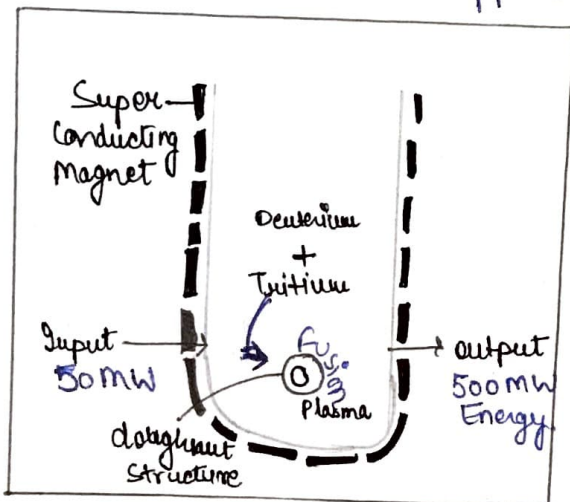 Super
Conducting
Magnet
Deuterium
+
Tritium
Input
50 MW
Fusion
Plasma
output
500 MW
Energy
doughnut
structure